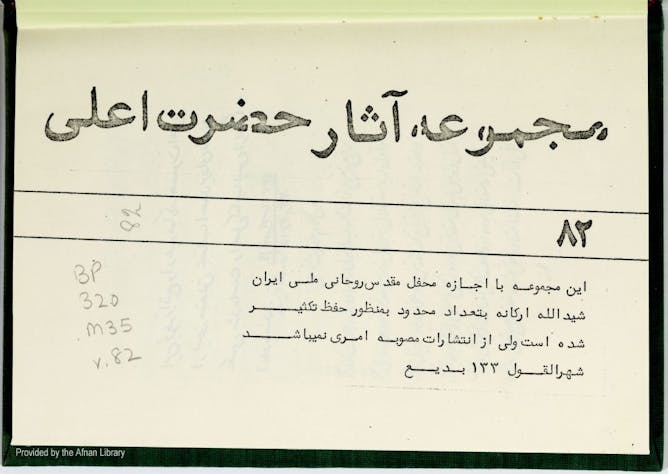 مجموعه آثار حضرت اعلی
۸۲
82
این مجموعه با اجازه محفل مقدس روحانی ملی ایران
شیدالله ارکانه بتعداد محدود بمنظور حفظ تکثیر
شده است ولی از انتشارات مصوبه امری نمیباشد
شهرالقول ۱۳۳ بدیع
BP
320
.M35
v.82
Provided by the Afnan Library